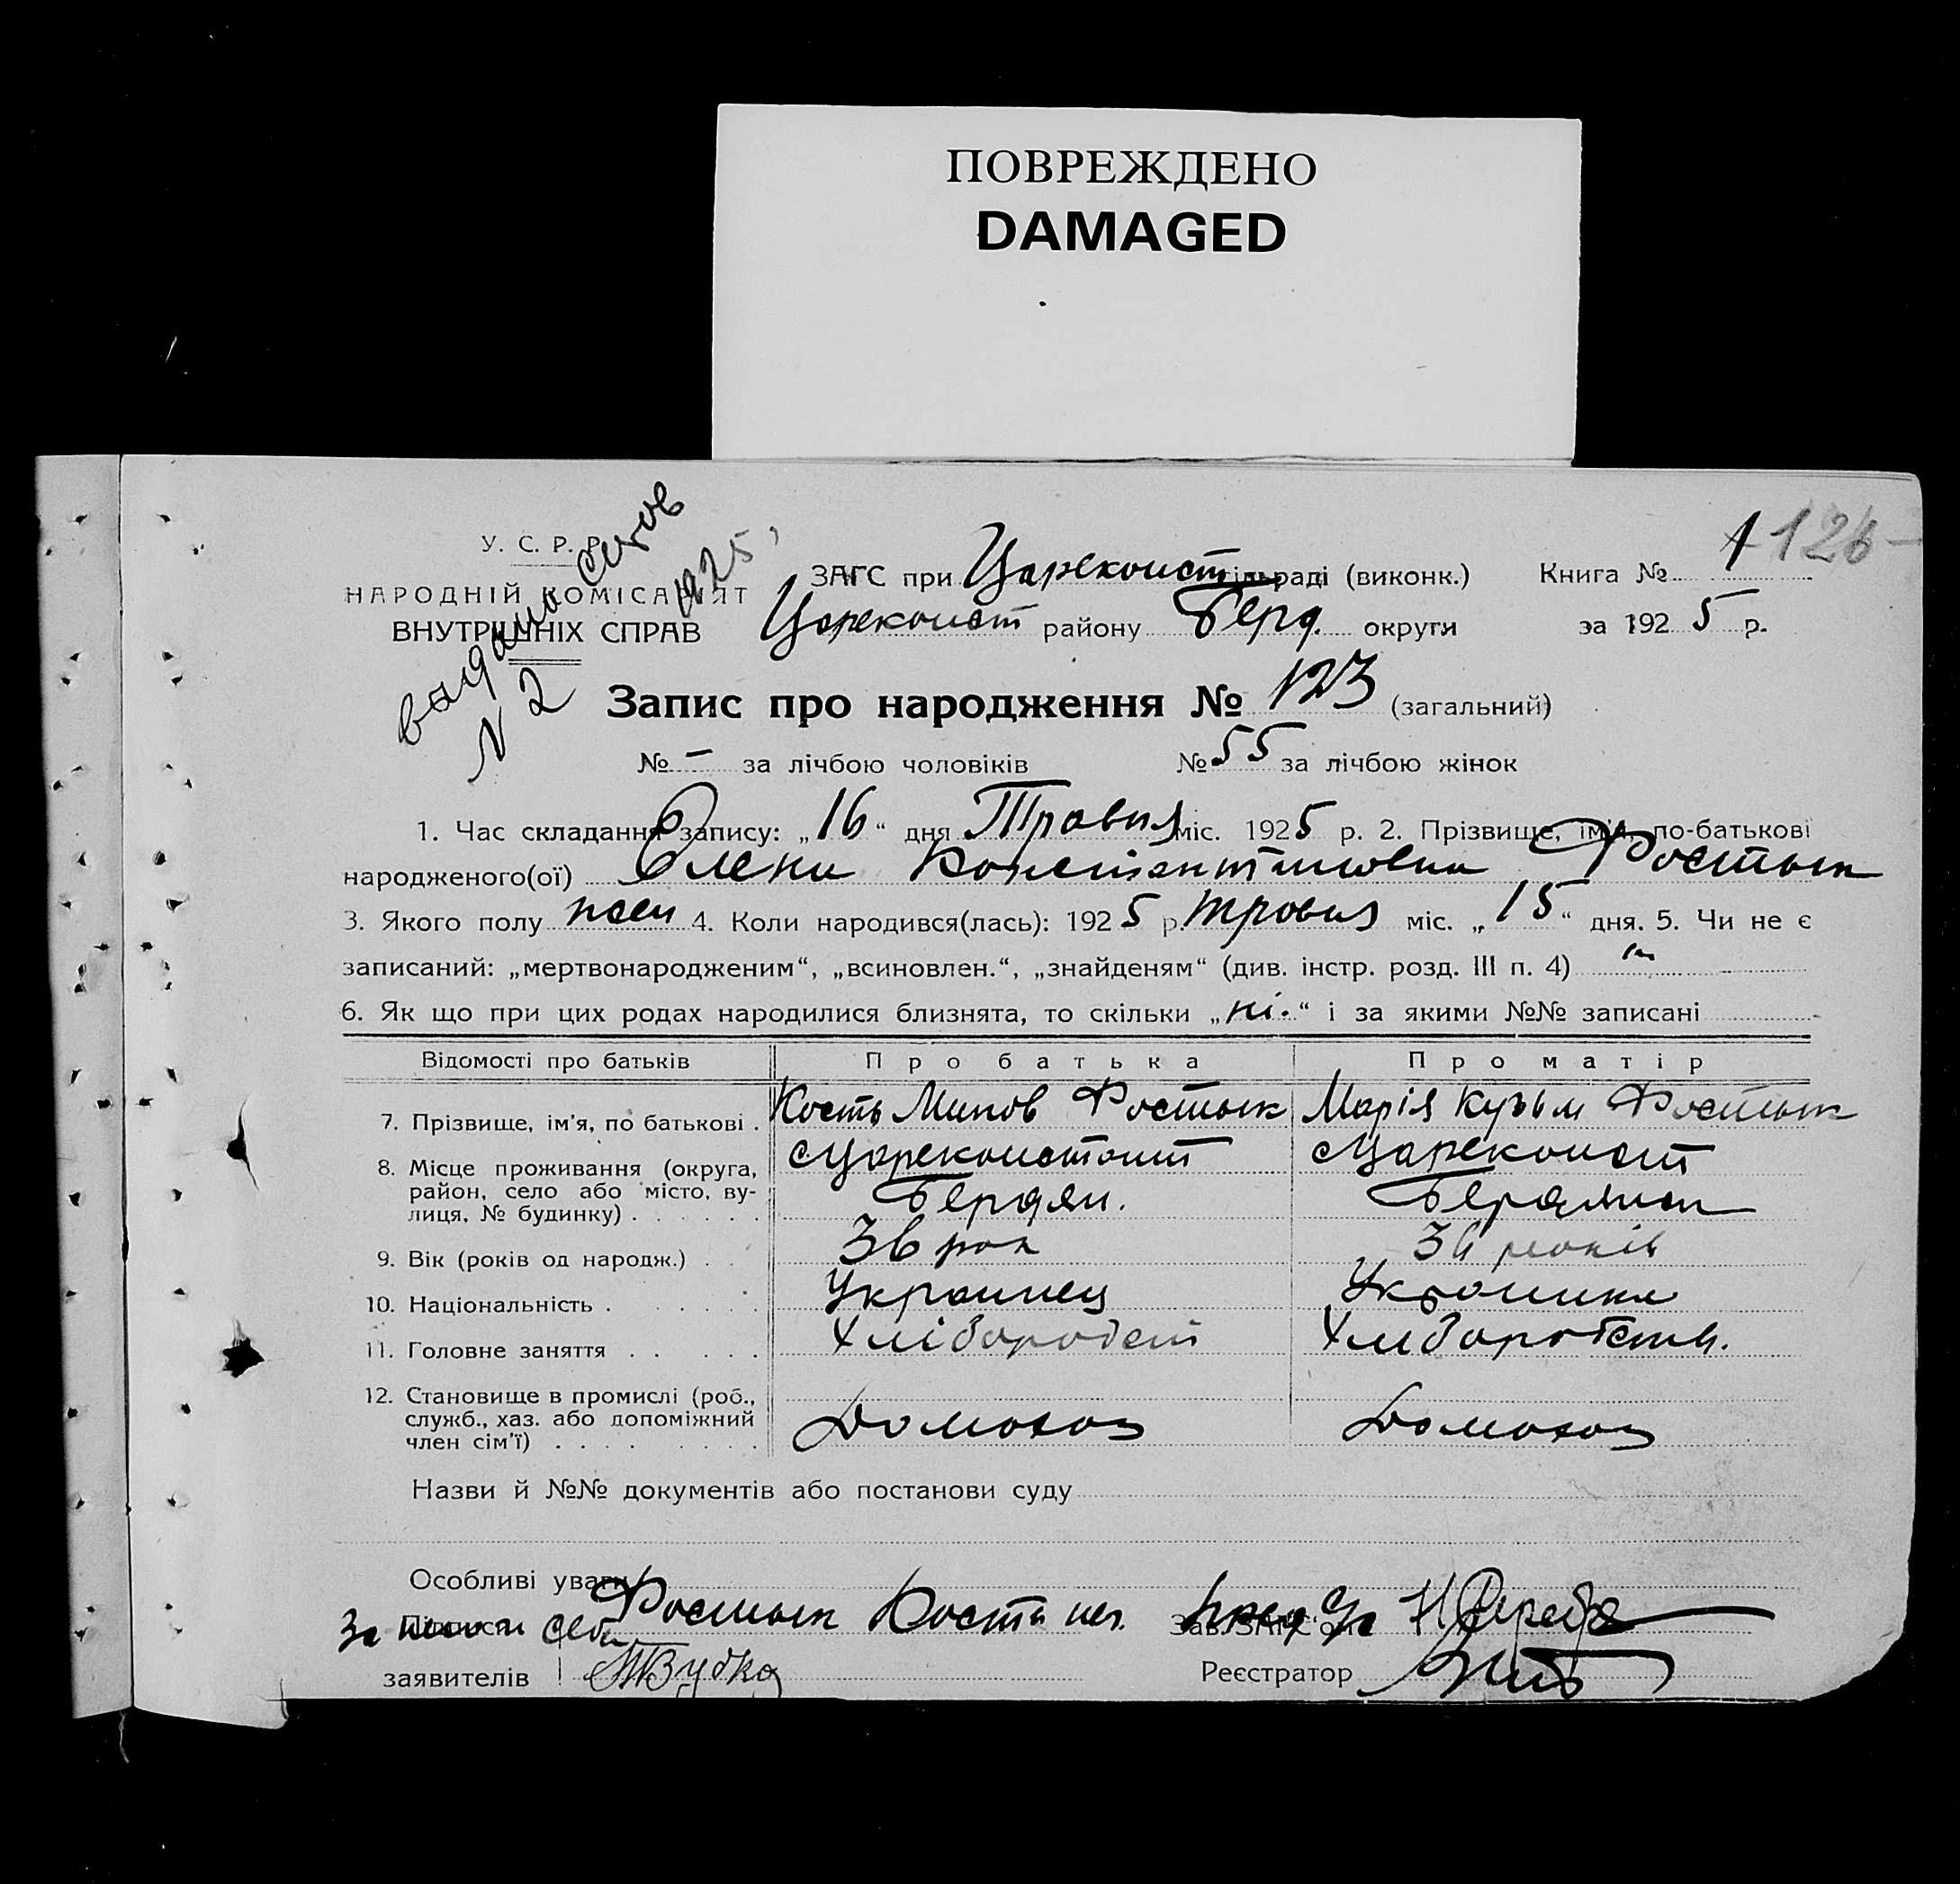 ПОВРЕЖДЕНО
DAMAGED
У. С. Р. Р.
НАРОДНІЙ КОМІСАРІЯТ
ВНУТРІШНІХ СПРАВ
1925
N 2
1 126
ЗАГС при Цареконст сільраді (виконк.) Книга №
Цареконст району Берд. округи за 1925 р.
Запис про народження № 123 (загальний)
№ – за лічбою чоловіків № 55 за лічбою жінок
1. Час складання запису: „16“ дня Травня міс. 1925 р. 2. Прізвище, ім'я, по-батькові
народженого(ої) Олена Константиновна Фостык
3. Якого полу жен 4. Коли народився(лась): 1925 р. травня міс. „15“ дня. 5. Чи не є
записаний: „мертвонародженим“, „всиновлен.“, „знайденям“ (див. інстр. розд. III п. 4)
6. Як що при цих родах народилися близнята, то скільки „ні.“ і за якими №№ записані
Відомості про батьків Про батька Про матір
7. Прізвище, ім'я, по батькові . Кость Минов Фостык Марія Кузьм Фостык
8. Місце проживання (округа, Цареконстант Цареконст
район, село або місто, ву-
лиця, № будинку) . . . . . . Бердян. Бердянск
9. Вік (років од народж.) . . 36 рок років
10. Національність . . . . . Украинец Украинка
11. Головне заняття . . . . . Хліборобст Хлиборобств.
12. Становище в промислі (роб.,
служб., хаз. або допоміжний Домохоз Домохоз
член сім'ї) . . . . . . . .
Назви й №№ документів або постанови суду
Особливі уваги
Підписи Фостык Зав. ЗАГС'ом
заявителів Реєстратор